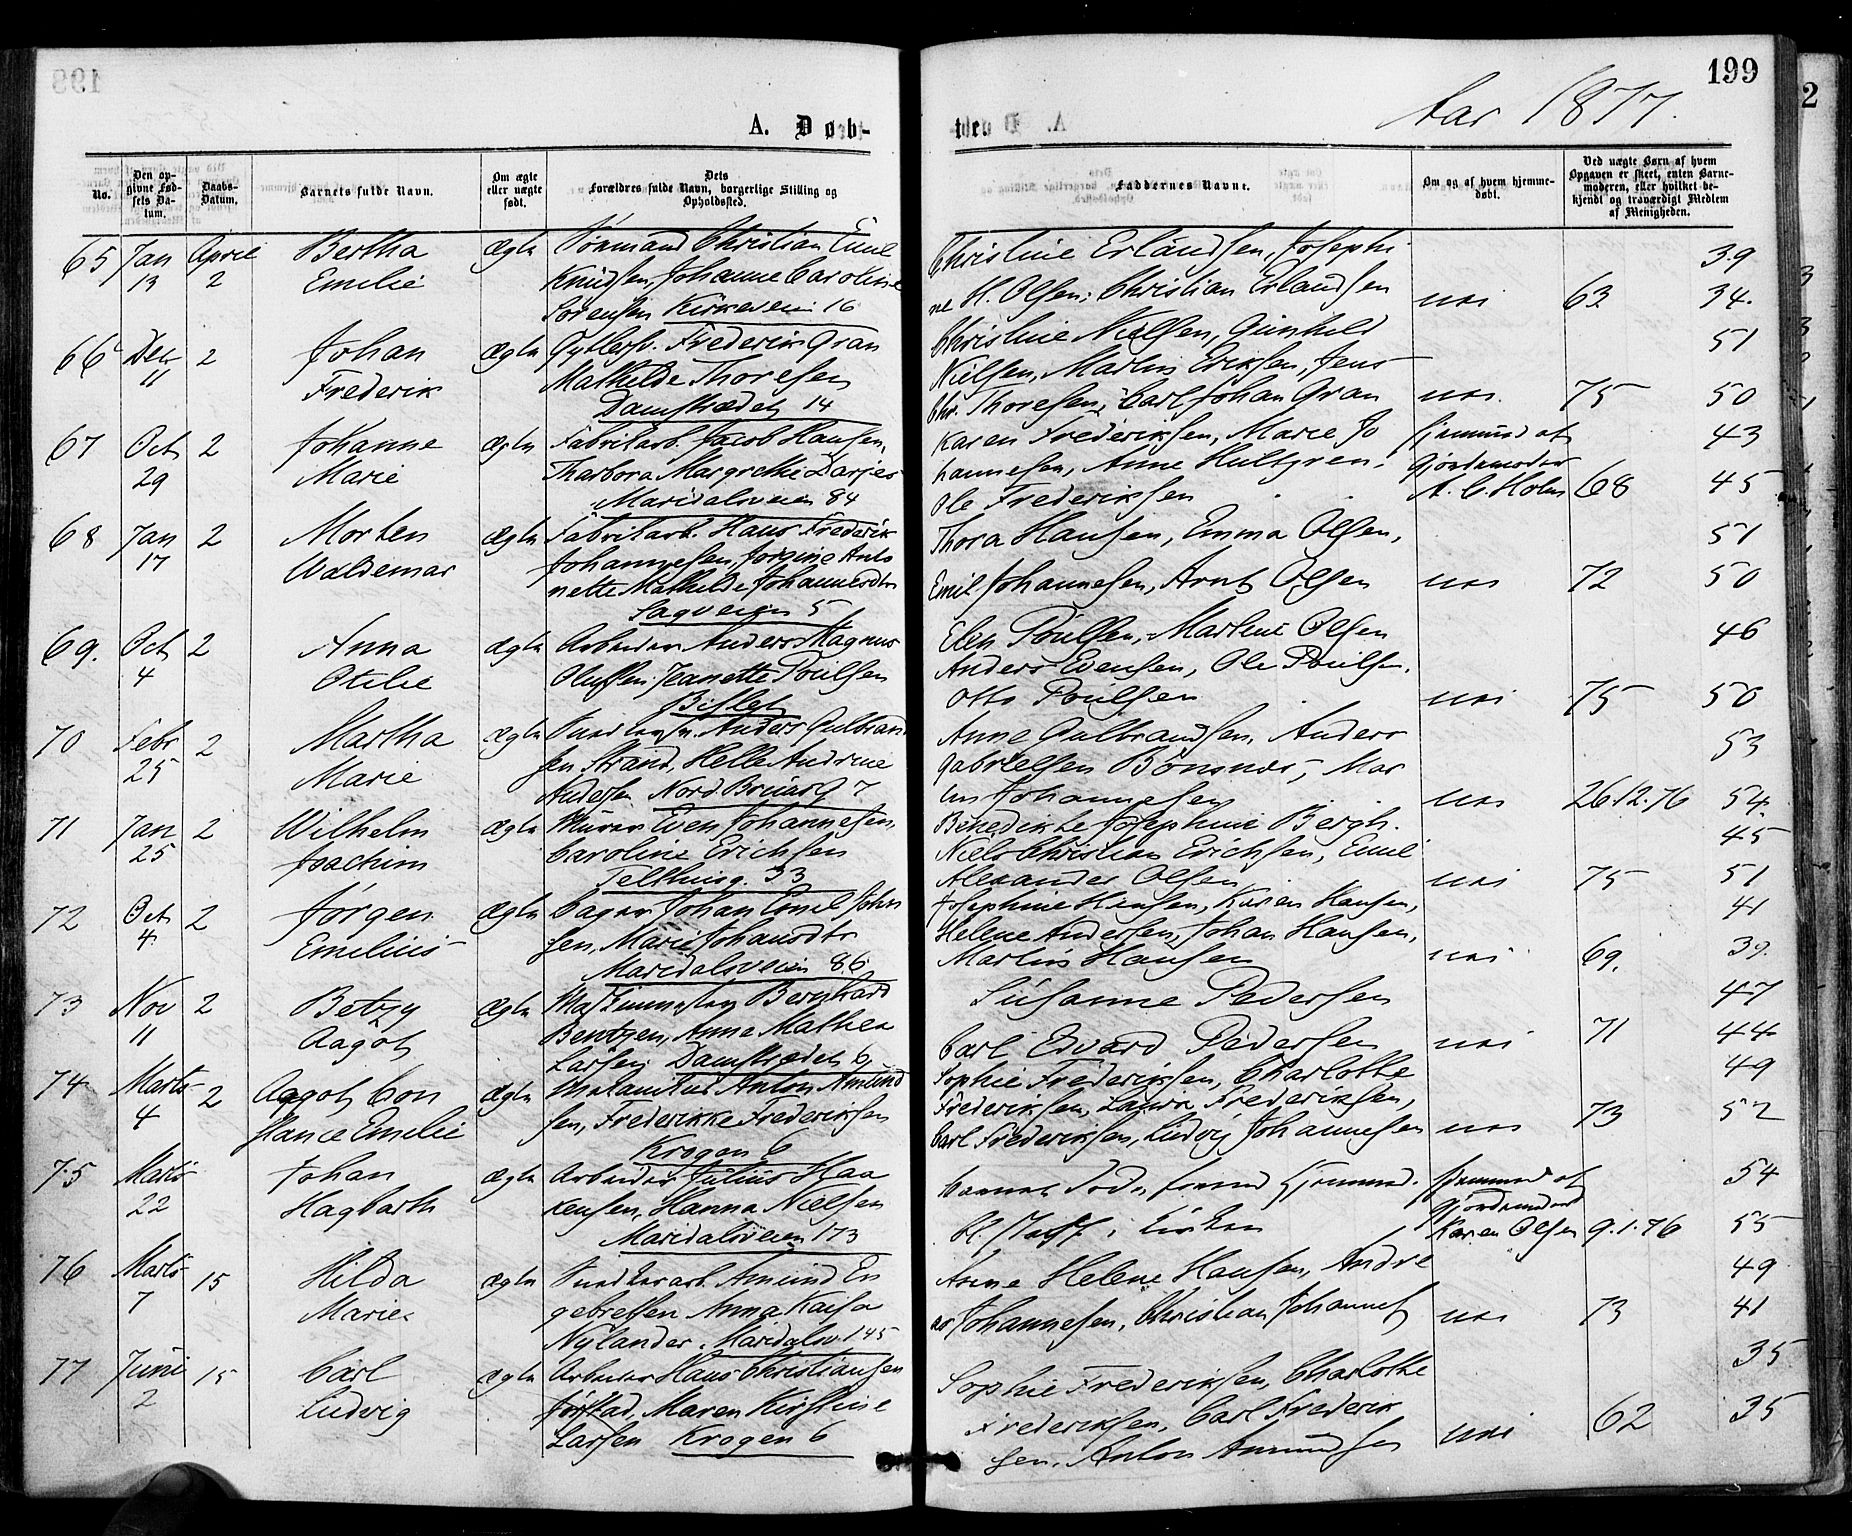 199
Aar 1877.
A. Døb-
te.
No.
Den op-
givne Fød-
sels Da-
tum.
Daabs-
Datum.
Barnets fulde Navn.
Om ægte
eller uægte
født.
Dets
Forældres fulde Navn, borgerlige Stilling og
Opholdssted.
Faddernes Navne.
Om og af hvem hjemme-
døbt.
Ved uægte Børn af hvem
Opgaven er skeet, enten Barne-
moderen, eller hvilket be-
kjendt og troværdigt Medlem
af Menigheden.
65 Jan April Bertha ægte Sømand Christian Emil Christine Erlandsen, Josephi 39
13 2 Emilie Knudsen, Johanne Caroline ne H. Olsen, Christian Erlandsen nei 63 34.
Sørensen Kirkeveien 16
66 Dec 2 Johan ægte Frederik Gran Christine Nielsen, Gunhild 51
11 Frederik Mathilde Thoresen Nielsen, Martin Eriksen, Jens
Damstrædet 14 Chr. Thoresen, Carl Johan Gran nei. 75 50
67 Oct 2 Johanne ægte Fabrikarb. Jacob Hansen, Karen Frederiksen, Marie Jo hjemmed af 43
29 Marie Margrethe hannesen, Anne Hultgren. Gjordemoder
Maridalsveien 84 Ole Frederiksen A. C. Holm 68 45
68 Jan 2 Morten ægte Fabrikarb. Hans Frederik Thora Hansen, Emma Olsen, 51
17 Waldemar Johannesen, Jorgine Anto
nette Mathilde Johannesdtr Emil Johannesen, Arnt Olsen nei 72 50
Sagveien 5
69. Oct 2 Anna ægte Arbeider Anders Magnus Elen Poulsen, Martine Olsen 46
4 Otilie Olufsen, Jeanette Poulsen Anders Evensen, Ole Poulsen.
Bislet Otto Poulsen nei 75 50
70 Febr 2 Martha ægte Anders Gulbrand Anne Gulbrandsen, Anders 53
25 Marie sen Strand, Helle Andrine Gabrielsen Bonsnes, Mar
Andersen Nord Bruunsg 7 tin Johannesen nei 26.12.76 54.
71 Jan 2 Wilhelm ægte Murer Even Johannesen, Benedikte Josephine Bergh. 45
25 Joachim Caroline Erichsen Niels Christian Erichsen, Emil
Telthusg. 33 Alexander Olsen nei 75 51
72 Oct 2 Jørgen ægte Bager Johan Emil John Josephine Hansen, Karen Hansen, 41
4 Emilius sen, Marie Johansdtr Helene Andersen, Johan Hansen,
Maridalsveien 86 Martin Hansen nei 69. 39.
73 Nov 2 Betzy ægte Bernhard Susanne Pedersen 47
11 Aagot Berntzen, Anne Mathea
Larsen Damstrædet 6 Carl Edvard Pedersen nei 71 44
74 Marts 2 Aagot Con ægte Mekanikus Anton Amund Sophie Frederiksen, Charlotte 49
4 stance Emilie sen, Frederikke Frederiksen Frederiksen, Laura Frederiksen,
Krogen 6 Carl Frederiksen, Ludvig Johannesen nei 73 52
75 Marts Johan ægte Arbeider Julius Haa hjemmed af 54
22 Hagbarth kensen, Hanna Nielsen i Kirken Gjordemoder
Maridalsveien 173 Karen Olsen 9.1.76 55
76 Marts 15 Hilda ægte Amund En Anne Helene Hansen, Andre 49
7 Marie gebretsen Anna Kaisa as Johannesen, Christian Johannes nei 73 41
Nylander. Maridalsv. 145
77 Juni 15 Carl ægte Arbeider Hans Christiansen Sophie Frederiksen, Charlotte 35
2 Ludvig Jørstad, Maren Kirstine Frederiksen, Carl Frederik
Larsen Krogen 6 sen, Anton Amundsen nei 62 35